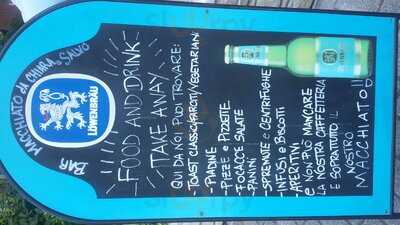 BAR
MACCHIATO di CHIARA e SALVO
LÖWENBRÄU
FOOD AND DRINK
TAKE AWAY
QUI DA NOI PUOI TROVARE:
- TOAST CLASSICI/FARCITI/VEGETARIANI
- PIADINE
- PIZZE e PIZZETTE
- FOCACCE SALATE
- PANINI
- SPREMUTE e CENTRIFUGHE
- INFUSI e BISCOTTI
- APERITIVI
E NON PUÒ MANCARE
LA NOSTRA CAFFETTERIA
E SOPRATTUTTO IL
NOSTRO
MACCHIATO!!